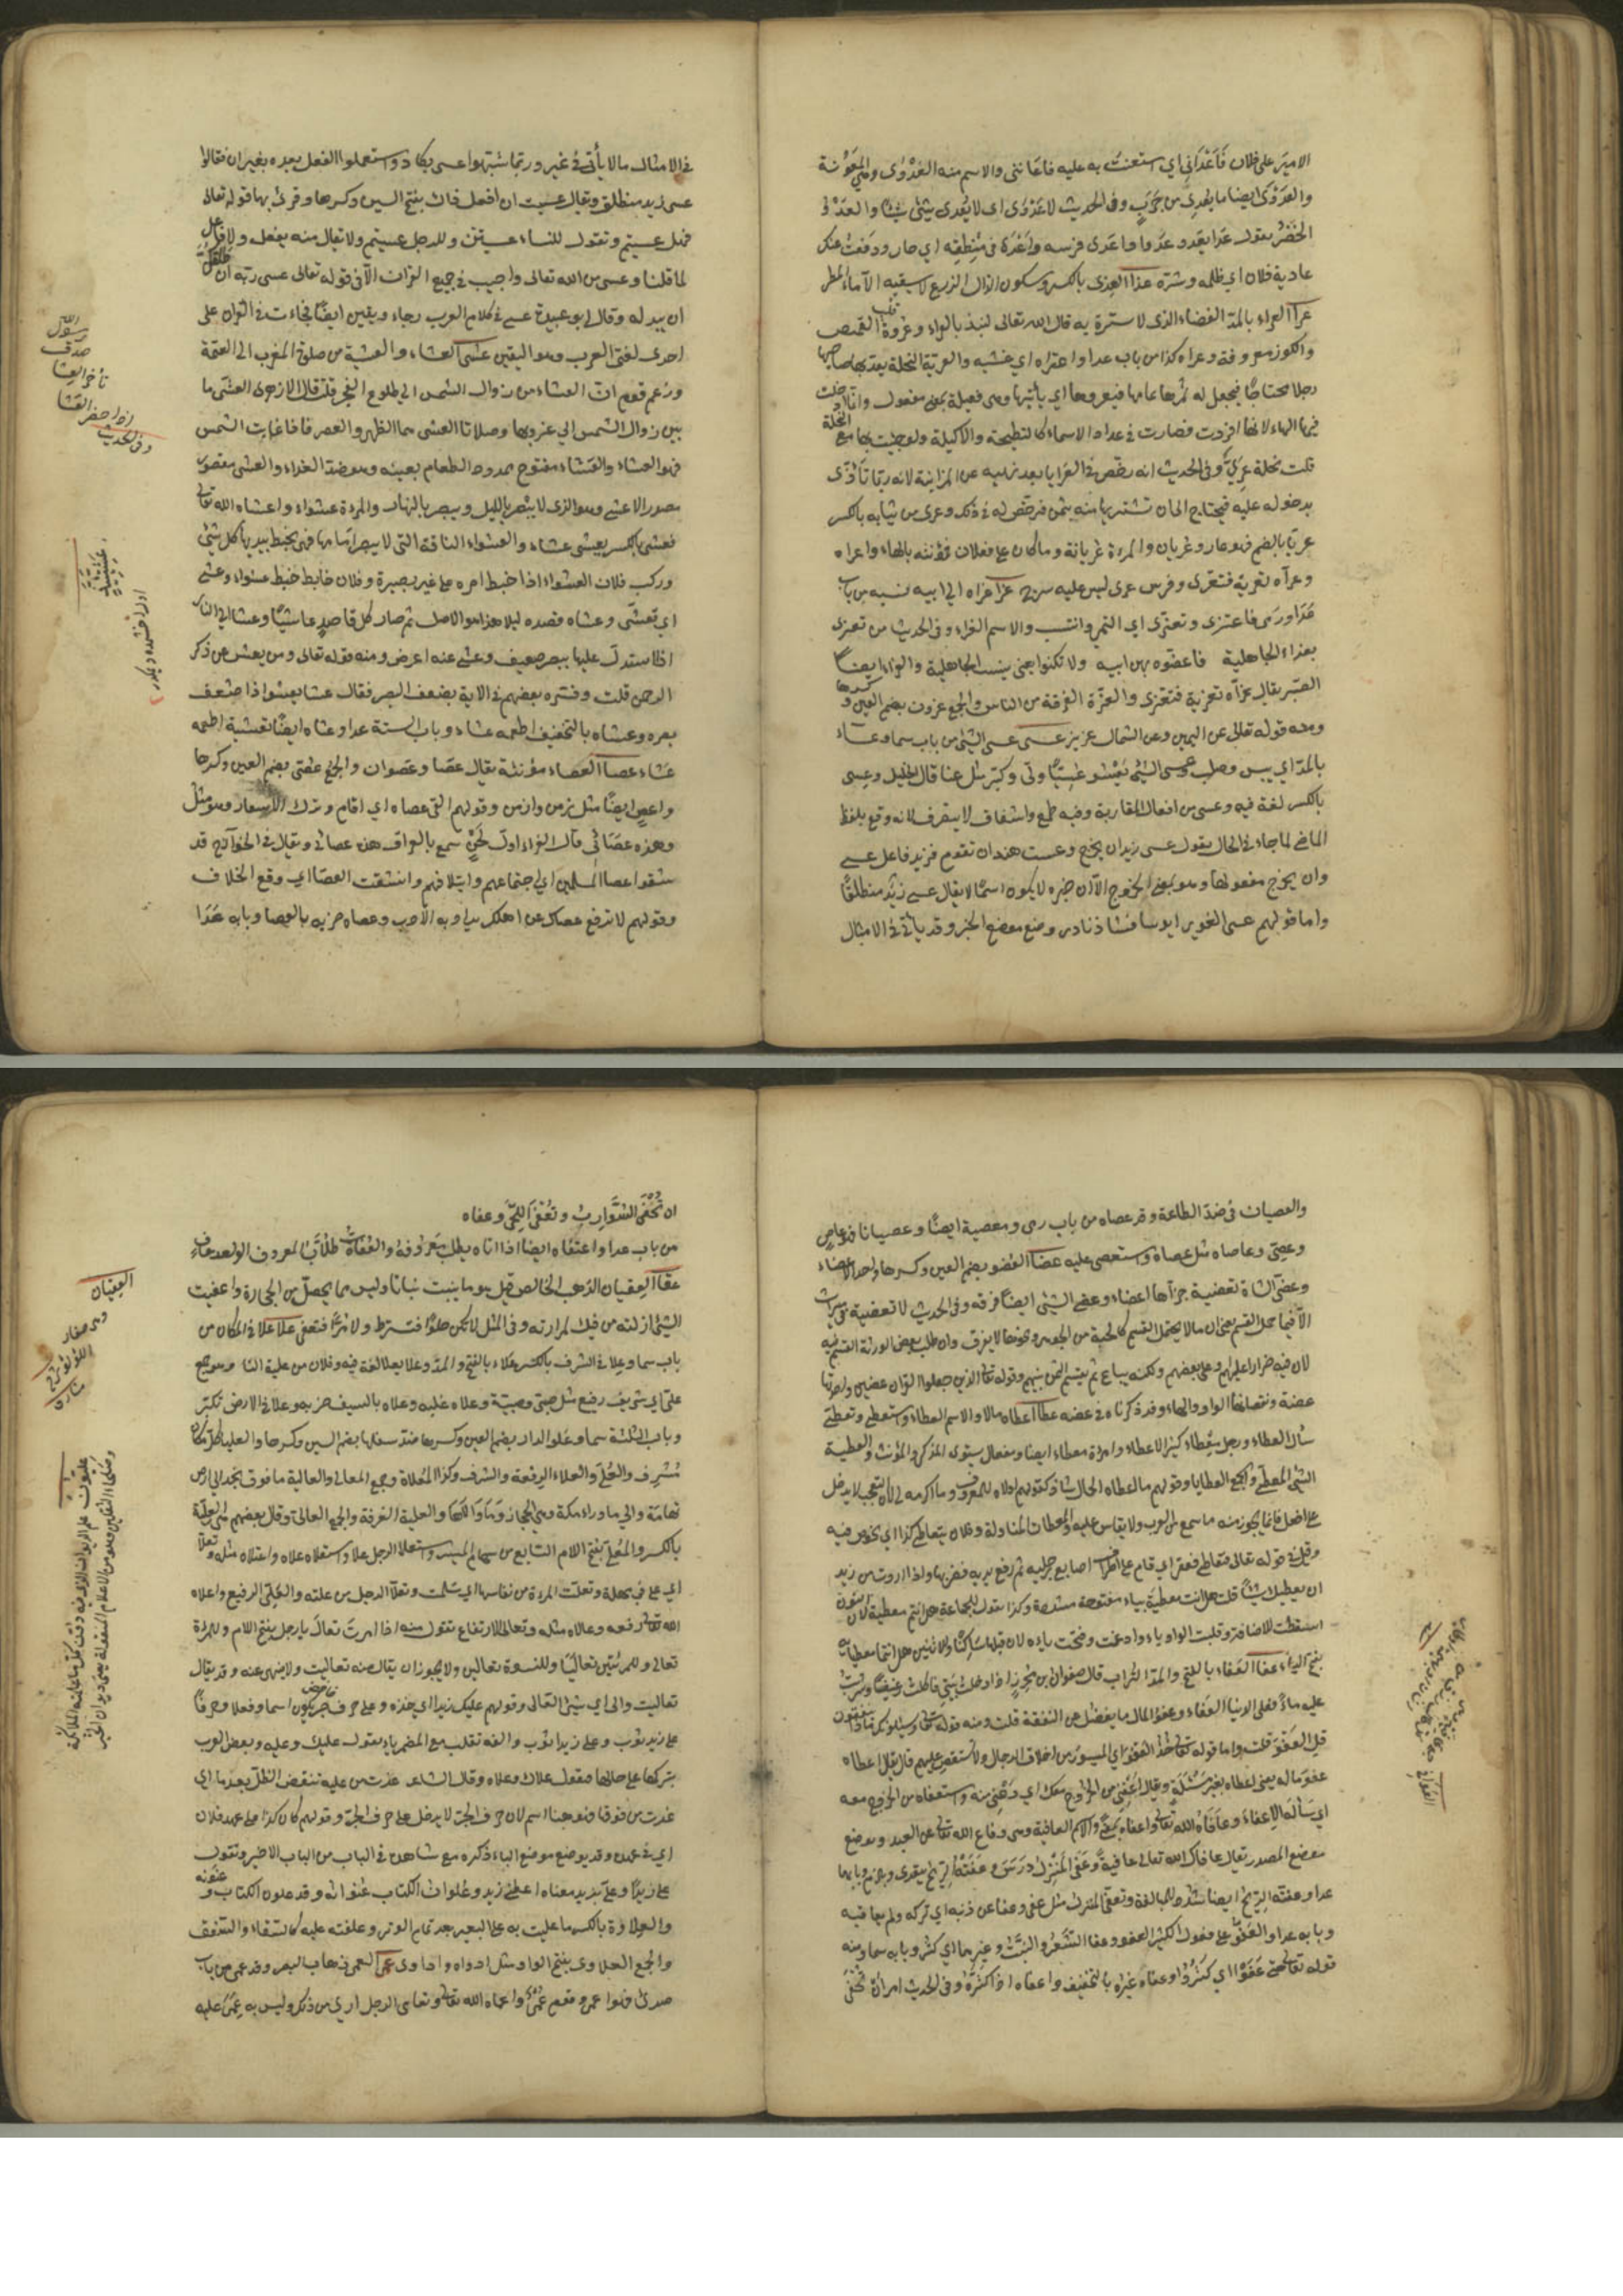 الامير على فلان فأعداني اي استعنت به عليه فاعانني والاسم منه العدوى وهي المعونة
والعدوى ايضا ما يعدي من جرب وفي الحديث لا عدوى اى لا يعدى شئ شيئا والعدو
الحضر يقول عدا يعدو عدوا واعدى فرسه واعدى في منطقه اي جار ودفعت عنك
عادية فلان اي ظلمه وشره عذا العذى بالكسر وسكون الذال الزرع لا يسقيه الا ماء المطر
عرا العراء بالمد الفضاء الذى لا سترة به قال الله تعالى لنبذ بالعراء وعروة القميص
والكوز معروفة وعراه كذا من باب عدا واعتراه اي غشيه والعرية النخلة يعريها صاحبها
رجلا محتاجا فيجعل له ثمرها عامها فيعروها اي يأتيها وهى فعيلة بمعنى مفعول وانما ادخلت
فيها الهاء لانها افردت فصارت في عداد الاسماء كالنطيحة والاكيلة ولو جئت بها مع النخلة
قلت نخلة عري وفى الحديث انه رخص فى العرايا بعد نهيه عن المزابنة لانه ربما تأذى
بدخوله عليه فيحتاج الى ان تشتريها منه بثمن فرخص له في ذلك وعرى من ثيابه بالكسر
عريا بالضم فهو عار وعريان والمراة عريانة وما كان على فعلان فمؤنثه بالهاء واعراه
وعراه تعرية فتعرى وفرس عرى ليس عليه سرج عزا عزاه الى ابيه نسبه من باب
عدا ورمى فاعتزى وتعزى اي انتمى وانتسب والاسم العزاء وفى الحديث من تعزى
بعزاء الجاهلية فاعضوه بهن ابيه ولا تكنوا يعني بنسب الجاهلية والعزاء ايضا
الصبر يقال عزاه تعزية فتعزى والعزة الفرقة من الناس والجمع عزون بضم العين وكسرها
ومنه قوله تعالى عن اليمين وعن الشمال عزين عسى عسى الشئ من باب سما وعساء
بالمد اي يبس وصلب وعسى الشيخ يعسو عسيا ولى وكبر مثل عتا قال الخليل وعسى
بالكسر لغة فيه وعسى من افعال المقاربة وفيه طمع واشفاق لا يتصرف لانه وقع بلفظ
الماضى لما جاء فى الحال يقول عسى زيد ان يخرج وعست هند ان تقوم فزيد فاعل عسى
وان يخرج مفعولها وهو بمعنى الخروج الا ان خبره لا يكون اسما لا يقال عسى زيد منطلقا
واما قولهم عسى الغوير ابؤسا فشاذ نادر وضع موضع الخبر وقد يأتى فى الامثال
فى الامثال ما لا يأتى فى غير وربما شبهوا عسى بكاد واستعملوا الفعل بعده بغير ان فقالوا
عسى زيد منطلق ويقال عسيت ان افعل ذاك بفتح السين وكسرها وقرئ بهما قوله تعالى
فهل عسيتم وتقول للنساء عسيتن وللرجل عسيتم ولا تقال منه يفعل ولا فاعل
لما قلنا وعسى من الله تعالى واجب فى جميع القران الا فى قوله تعالى عسى ربه ان طلقكن
ان يبدله وقال ابو عبيدة عسى فى كلام العرب رجاء ويقين ايضا فجاءت فى القران على
احدى لغتى العرب وهو اليقين عشى العشاء والعشية من صلوة المغرب الى العتمة
وزعم قوم ان العشاء من زوال الشمس الى طلوع الفجر قلت قال الازهرى العشى ما
بين زوال الشمس الى غروبها وصلاتا العشى هما الظهر والعصر فاذا غابت الشمس
فهو العشاء والعشاء مفتوح ممدود الطعام بعينه وهو ضد الغداء والعشى مقصور
مصدر الاعشى وهو الذى لا يبصر بالليل ويبصر بالنهار والمراة عشواء واعشاه الله تعالى
فعشى بالكسر يعشى عشاء والعشواء الناقة التى لا تبصر امامها فهى تخبط بيديها كل شئ
وركب فلان العشواء اذا خبط امره على غير بصيرة وفلان خابط خبط عشواء وعشى
اي تعشى وعشاه قصده ليلا هذا هو الاصل ثم صار كل قاصد عاشيا وعشا الى النار
اذا استدل عليها ببصر ضعيف وعشى عنه اعرض ومنه قوله تعالى ومن يعش عن ذكر
الرحمن قلت وفسره بعضهم فى الاية بضعف البصر فقال عشا يعشوا اذا ضعف
بصره وعشاه بالتخفيف اطعمه عشاء وباب الستة عدا وعشاه ايضا تعشية اطعمه
عشاء عصا العصاء مؤنثة يقال عصا وعصوان والجمع عصى بضم العين وكسرها
واعص ايضا مثل زمن وازمن وقولهم القى عصاه اي اقام وترك الاسفار وهو مثل
وهذه عصائى قال الفراء اول لحن سمع بالعراق هذه عصاتى ويقال فى الخوارج قد
شقوا عصا المسلمين اي اجتماعهم وايتلافهم وانشقت العصا اي وقع الخلاف
وقولهم لا ترفع عصاك عن اهلك يراد به الادب وعصاه ضربه بالعصا وبابه عدا
وفى الحديث
اذا حضر العشا
تأخر العشا
صدق
رسول الله
والعصيان فى ضد الطاعة وقد عصاه من باب رمى ومعصية ايضا وعصيانا فهو عاص
وعصى وعاصاه مثل عصاه واستعصى عليه عضا العضو بضم العين وكسرها واحد الاعضاء
وعضى الشاة تعضية جزاها اعضاء وعضى الشئ ايضا فرقه وفى الحديث لا تعضية فى ميراث
الا فيما حمل القسم يعنى ان ما لا يحتمل القسم كالحبة من الجوهر ونحوها لا يفرق وان طلب بعض الورثة القسم فيه
لان فيه ضررا عليهم وعلى بعضهم ولكنه يباع ثم يقسم الثمن بينهم وقوله تعالى الذين جعلوا القران عضين واحدتها
عضة ونقصانها الواو والهاء وقد ذكرناه فى عضه عطا اعطاه مالا والاسم العطاء واستعطى وتعطى
سأل العطاء ورجل معطاء كثير الاعطاء وامراة معطاء ايضا ومفعال يستوى المذكر والمؤنث والعطية
الشئ المعطى والجمع العطايا وقولهم ما اعطاه المال شاذ كقولهم ما اولاه للمعروف وما اكرمه لى لان التعجب لا يدخل
على افعل فانما يجوز منه ما سمع من العرب ولا يقاس عليه والمعاطات المناولة وفلان يتعاطى كذا اي يخوض فيه
وقيل فى قوله تعالى فتعاطى فعقر اي قام على اطراف اصابع رجليه ثم رفع يديه فضربها واذا اردت من زيد
ان يعطيك شيئا قلت هل انت معطيه بياء مفتوحة مشددة وكذا تقول للجماعة هل انتم معطيه لان النون
اسقطت للاضافة وقلبت الواو ياء وادغمت وفتحت ياؤه لان قبلها ساكنا وللاثنين هل انتما معطيايه
بفتح الياء عفا العفاء بالفتح والمد التراب قال صفوان بن محرز اذا دخلت بيتى فاكلت رغيفا وشربت
عليه ماء فعلى الدنيا العفاء وعفو المال ما يفضل عن النفقة قلت ومنه قوله تعالى ويسئلونك ماذا ينفقون
قل العفو قلت واما قوله تعالى خذ العفو اي الميسور من اخلاق الرجال ولا تستقص عليهم قال يقال اعطاه
عفو ماله يعنى اعطاه بغير مسئلة ويقال اعفنى من الخروج معك اي دعنى منه واستعفاه من الخروج معه
اي سأله الاعفاء وعافاه الله تعالى واعفاه بمعنى والاسم العافية وهى دفاع الله تعالى عن العبد وتوضع
موضع المصدر يقال عافاك الله تعالى عافية وعفى المنزل درس وعفته الريح يتعدى ويلزم وبابهما
عدا وعفته الريح ايضا شدد للمبالغة وتعفى المنزل مثل عفى وعفا عن ذنبه اي تركه ولم يعاقبه
وبابه عدا والعفو على فعول الكثير العفو وعفا الشعر والنبت وغيرهما اي كثر وبابه سما ومنه
قوله تعالى حتى عفوا اي كثروا وعفاه غيره بالتخفيف واعفاه اذا كثره وفى الحديث امر ان تحفى
ان تحفى الشوارب وتعفى اللحى وعفاه
من باب عدا واعتفاه ايضا اذا اتاه يطلب معروفه والعفاة طلاب المعروف الواحد عاف
عقا العقيان الذهب الخالص قيل هو ما ينبت نباتا وليس مما يحصل من الحجارة واعقيت
الشئ ازلته من فيك لمرارته وفى المثل لا تكن حلوا فتسترط ولا مرا فتعقى علا علا فى المكان من
باب سما وعلا فى الشرف بالكسر علاء بالفتح والمد وعلا يعلا لغة فيه وفلان من علية الناس وهو جمع
على اي شريف رفيع مثل صبى وصبية وعلاه غلبه وعلاه بالسيف ضربه وعلا فى الارض تكبر
وباب الثلثة سما وعلو الدار بضم العين وكسرها ضد سفلها بضم السين وكسرها والعلياء كل مكان
مشرف والعلى والعلاء الرفعة والشرف وكذا المعلاة وجمع المعالى والعالية ما فوق نجد الى ارض
تهامة والى ما وراء مكة وهى الحجاز وما والاها والعلية الغرفة والجمع العلالى وقال بعضهم هى العلية
بالكسر والمعلى بفتح اللام السابع من سهام الميسر واستعلا الرجل علا واستعلاه علاه واعتلاه مثله وتعلى
اي علا فى مهلة وتعلت المراة من نفاسها اي سلمت وتعلا الرجل من علته والعلى الرفيع واعلاه
الله تعالى رفعه وعالاه مثله وتعالى الارتفاع تقول منه اذا امرت تعال يا رجل بفتح اللام وللمراة
تعالى وللمراتين تعاليا وللنسوة تعالين ولا يجوز ان يقال منه تعاليت ولا ينهى عنه وقد يقال
تعاليت والى اي شئ اتعالى وقولهم عليك زيدا اي خذه وعلى حرف خافض يكون اسما وفعلا وحرفا
على زيد ثوب وعلى زيدا ثوب والفه تقلب مع المضمر ياء يقول عليك وعليه وبعض العرب
يتركها على حالها فيقول علاك وعلاه وقال الشاعر غدت من عليه تنقض الظل بعد ما اي
غدت من فوقه فهو هنا اسم لان حرف الجر لا يدخل على حرف الجر وقولهم كان كذا على عهد فلان
اي فى عهده وقد يوضع موضع الباء ذكره مع شاهده فى الباب من الباب الاخير وتقول
على زيدا وعلى بزيد معناه اعطنى زيد وعلوان الكتاب عنوانه وقد علون الكتاب وعنونه
والعلاوة بالكسر ما عليت به على البعير بعد تمام الوقر وعلقته عليه كالسقاء والسفود
والجمع العلاوى بفتح الواو مثل اداوة واداوى عمى العمى ذهاب البصر وقد عمى من باب
صدى فهو اعمى وقوم عمى واعماه الله تعالى وتعامى الرجل ارى من ذلك وليس به عمى عليه
العقيان